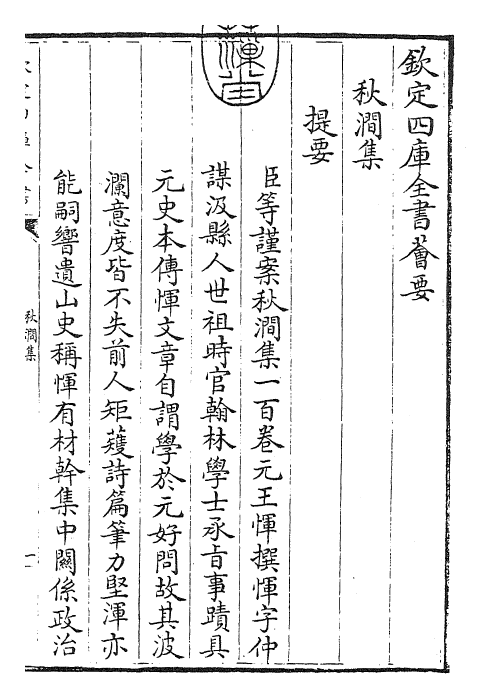 欽定四庫全書薈要
秋澗集
提要
臣等謹案秋澗集一百卷元王惲撰惲字仲
謀汲縣人世祖時官翰林學士承旨事蹟具
元史本傳惲文章自謂學於元好問故其波
瀾意度皆不失前人矩矱詩篇筆力堅渾亦
能嗣響遺山史稱惲有材幹集中關係政治
秋澗集
一